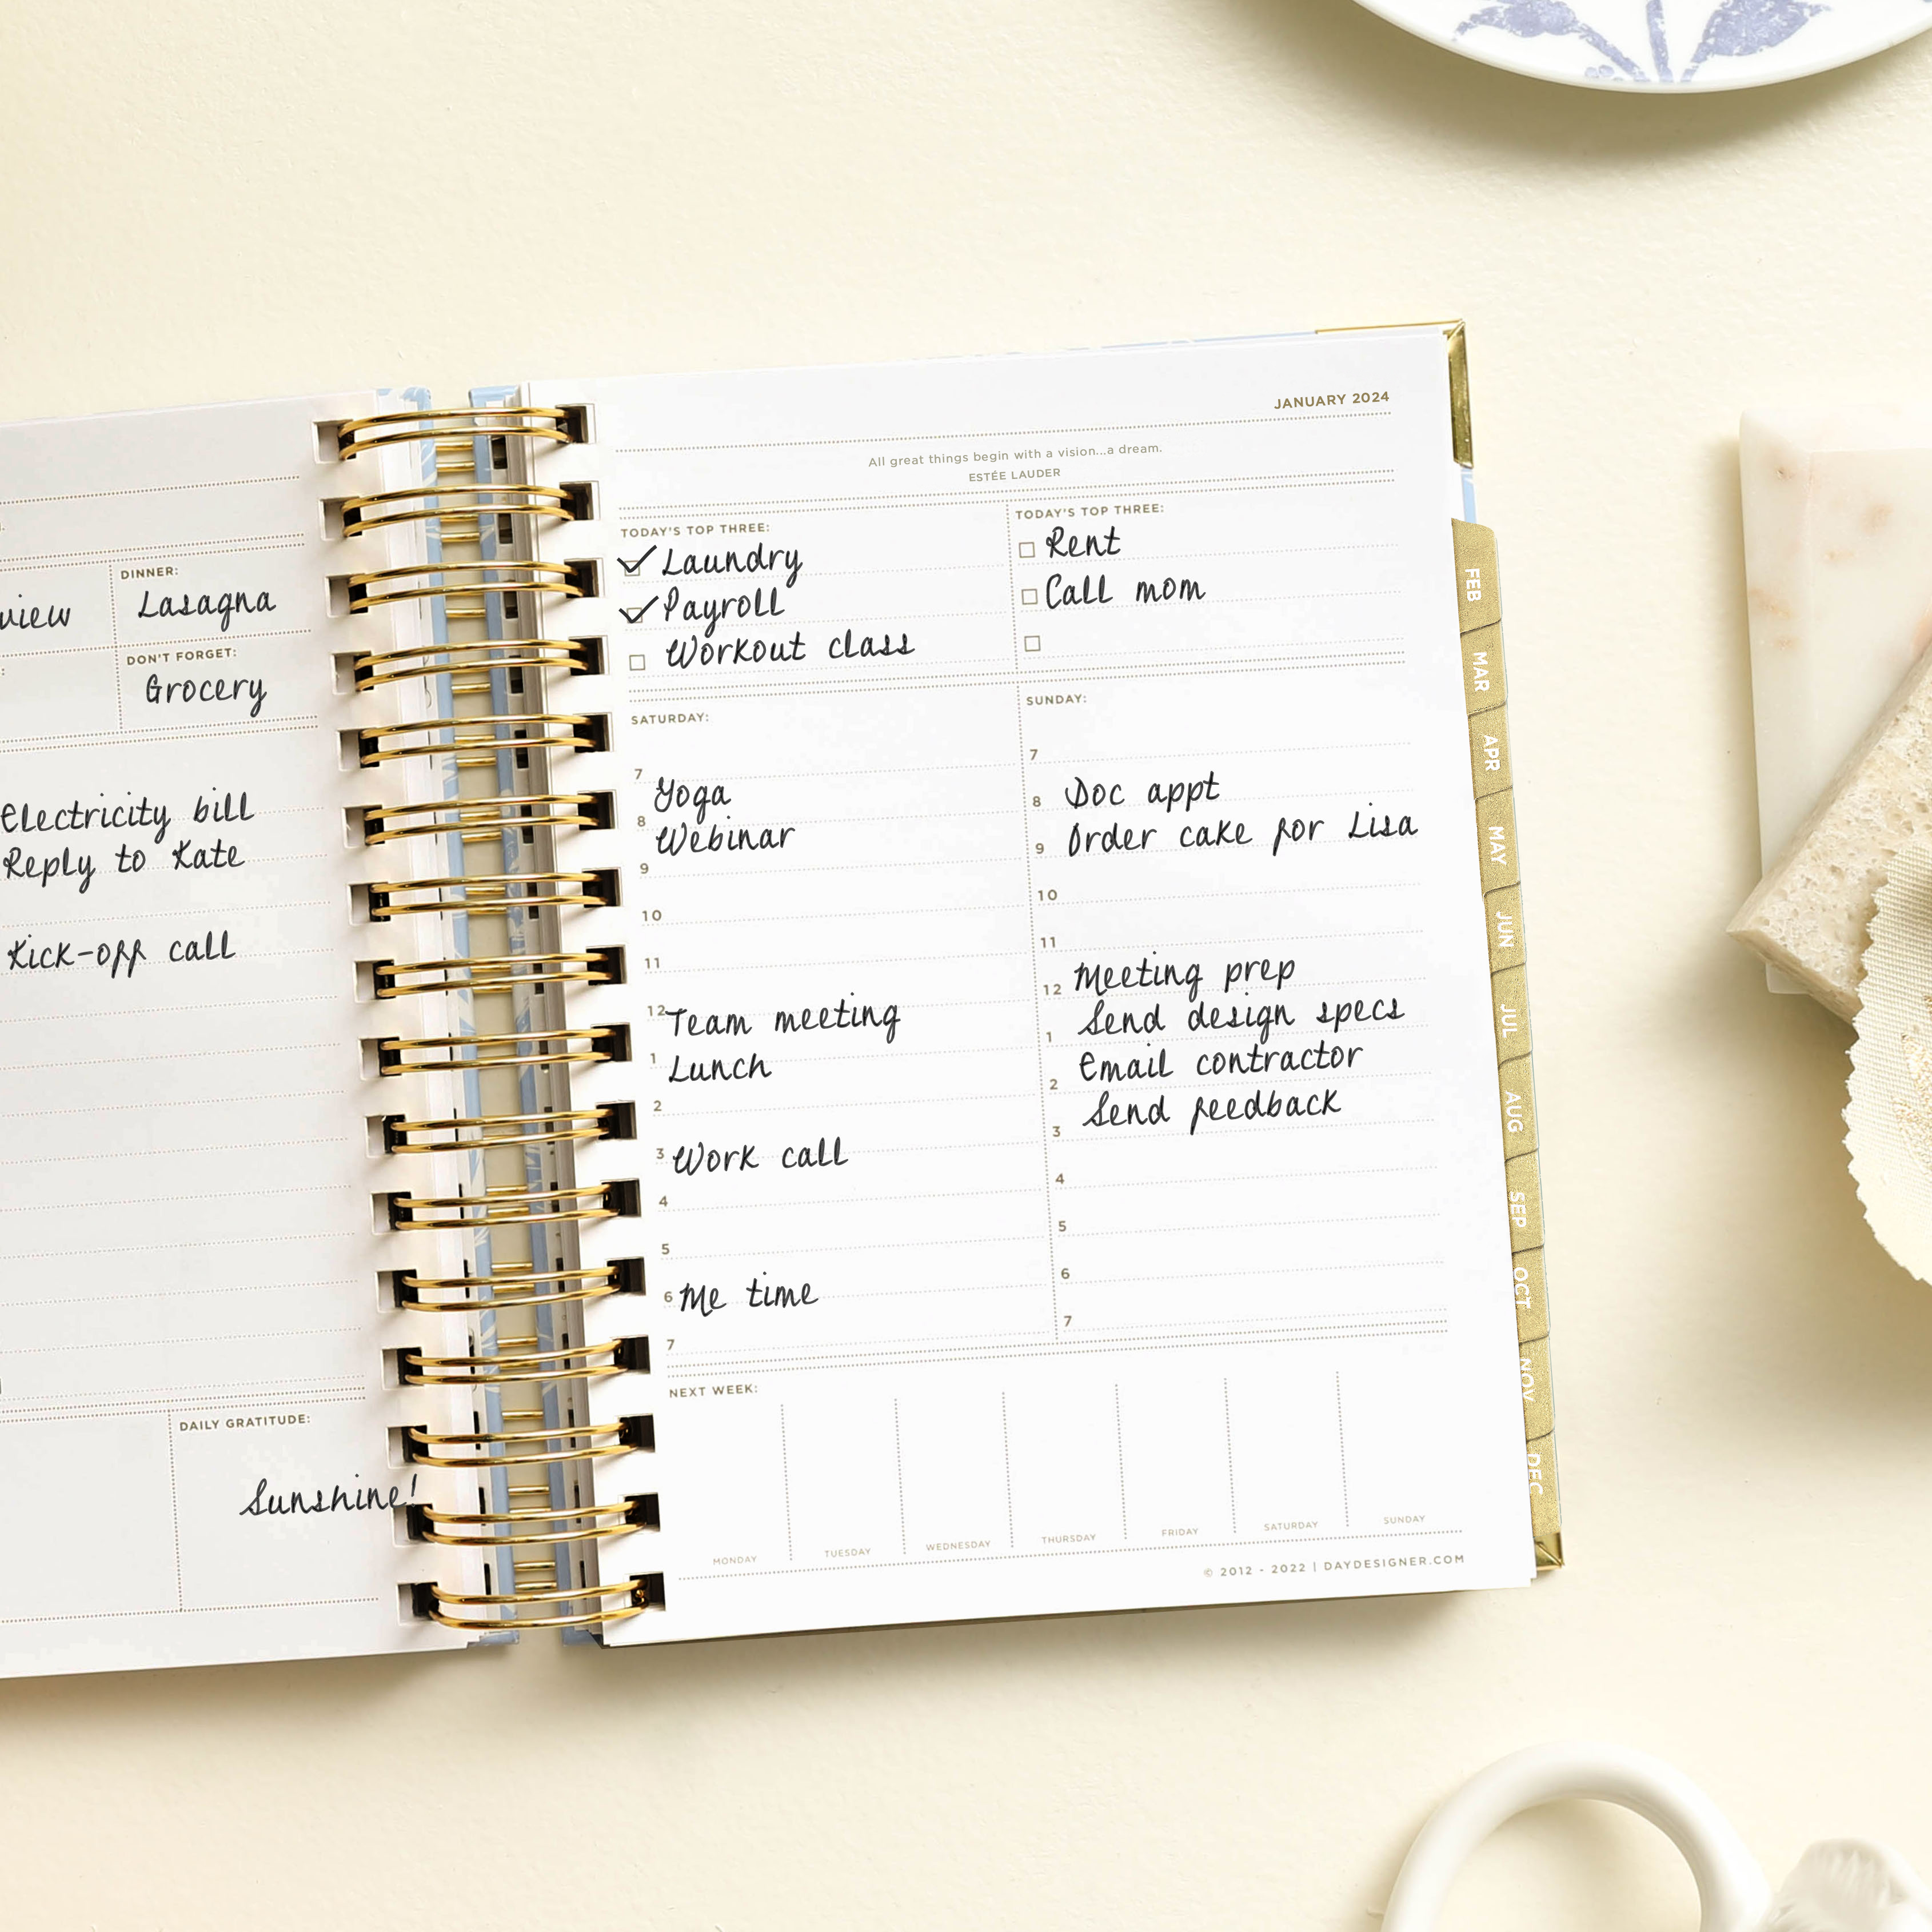 view
DINNER:
Lasagna
DON'T FORGET:
Grocery
Electricity bill
Reply to Kate
Kick-off call
DAILY GRATITUDE:
Sunshine!
JANUARY 2024
All great things begin with a vision...a dream.
ESTÉE LAUDER
TODAY'S TOP THREE:
Laundry
Payroll
Workout class
TODAY'S TOP THREE:
Rent
Call mom
SATURDAY:
7
Yoga
8
Webinar
9
10
11
12 Team meeting
1 Lunch
2
3 Work call
4
5
6 Me time
7
SUNDAY:
7
8 Doc appt
9 Order cake for Lisa
10
11
12 Meeting prep
1 Send design specs
2 Email contractor
3 Send feedback
4
5
6
7
NEXT WEEK:
MONDAY
TUESDAY
WEDNESDAY
THURSDAY
FRIDAY
SATURDAY
SUNDAY
© 2012 - 2022 | DAYDESIGNER.COM
FEB
MAR
APR
MAY
JUN
JUL
AUG
SEP
OCT
NOV
DEC